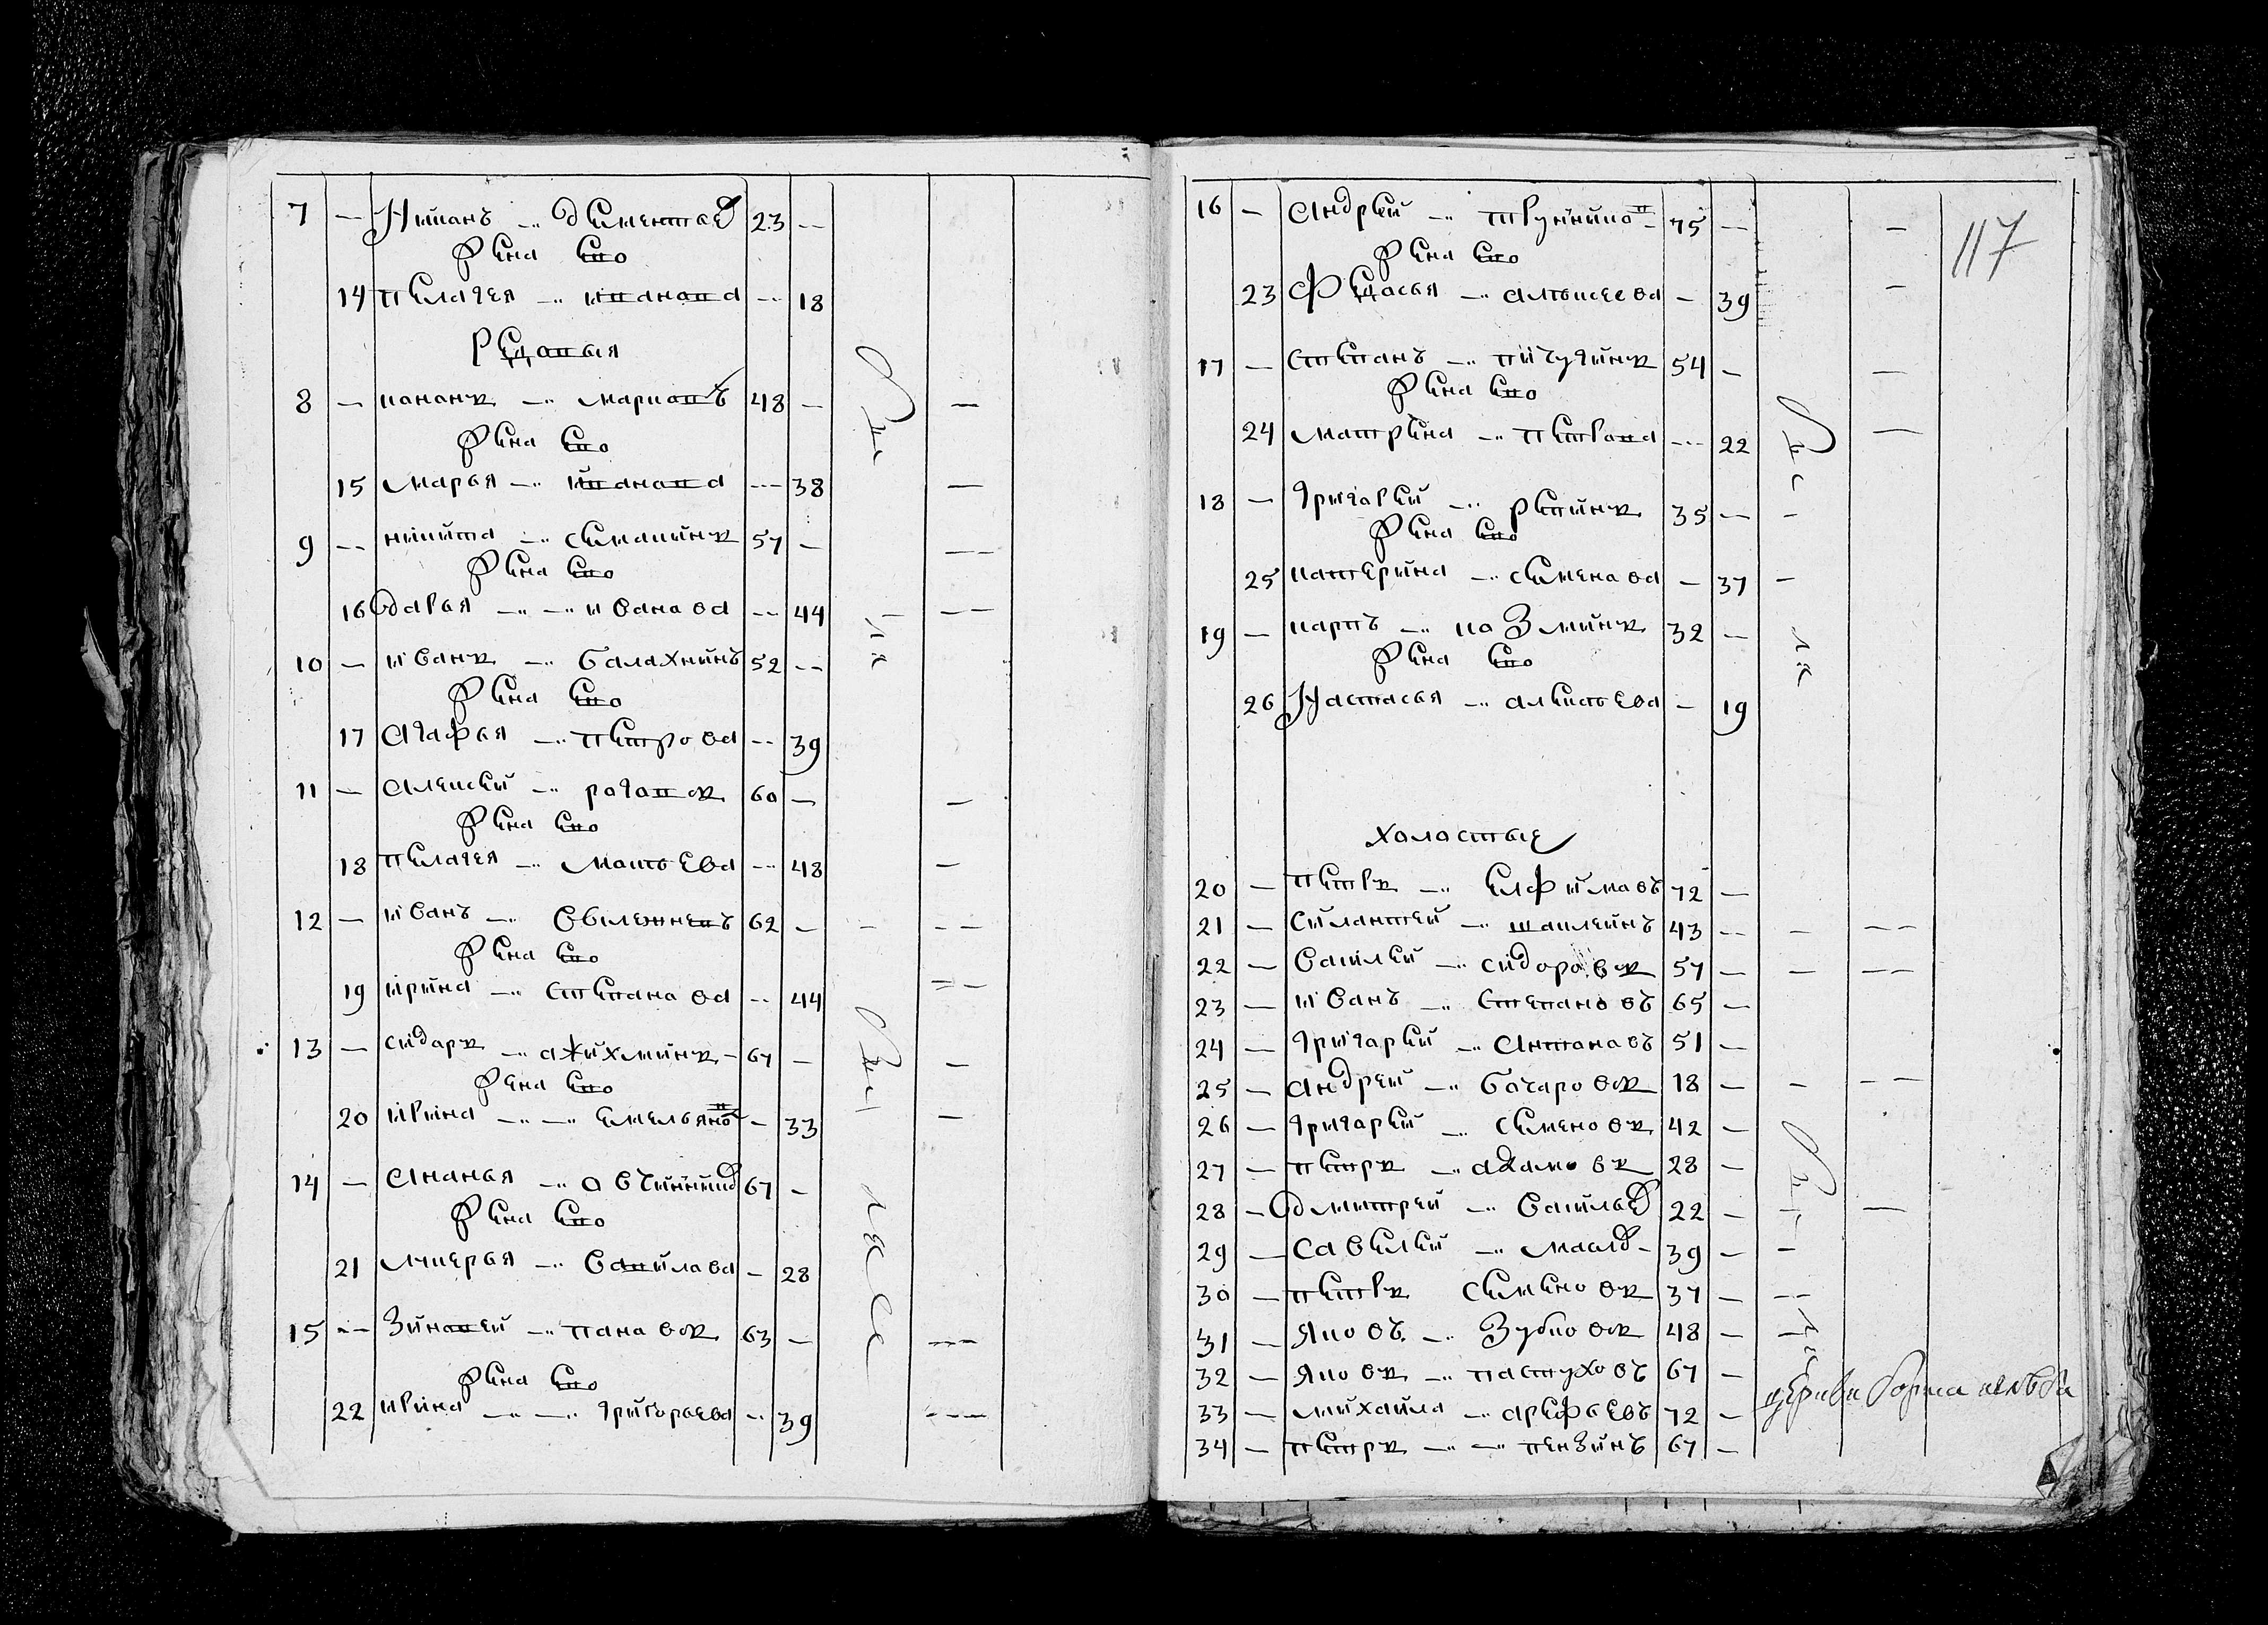 7 — Никанъ — дементьев 23 —
жена ево
14 пелагея — иванова — 18
Редовыя
8 — кананъ — марковъ 48 —
жена ево
15 марья — иванова — 38
9 — никита — семакинъ 57 —
жена ево
16 дарья — ивановa — 44
10 — иванъ — балахнинъ 52 —
жена ево
17 агафья — петрова — 39
11 — алексей — роговъ 60 —
жена ево
18 пелагея — матьева — 48
12 — иванъ — 62 —
жена ево
19 ирина — степанова — 44
13 — сидаръ — 67 —
жена ево
20 ирина — емельянов — 33
14 — ананья — авчинник 67 —
жена ево
21 лукерья — вавилава — 28
15 — Зиновей — пановъ 63 —
жена ево
22 ирина — григорьева — 39
117
16 — андрей — 75 —
жена ево
23 федосья — алексеева — 39
17 — степанъ — пичугинъ 54 —
жена ево
24 матрена — петрова — 22
18 — григорей — репинъ 35 —
жена ево
25 катерина — семенава — 37
19 — карпъ — козминъ 32 —
жена ево
26 Настасья — алексьева — 19
холостые
20 — петръ — елфимавъ 72 —
21 — силантей — шаклеинъ 43 —
22 — василей — сидоровъ 57 —
23 — иванъ — степановъ 65 —
24 — григарей — антанавъ 51 —
25 — андрей — бочаровъ 18 —
26 — григарей — семеновъ 42 —
27 — петръ — адамовъ 28 —
28 — дмитрей — василье 22 —
29 — савелей — 39 —
30 — петръ семеновъ 37 —
31 — яковъ — Зубковъ 48 —
32 — яковъ — пастуховъ 67 —
33 — михаила — арефьевъ 72 —
34 — петръ — пензинъ 67 —